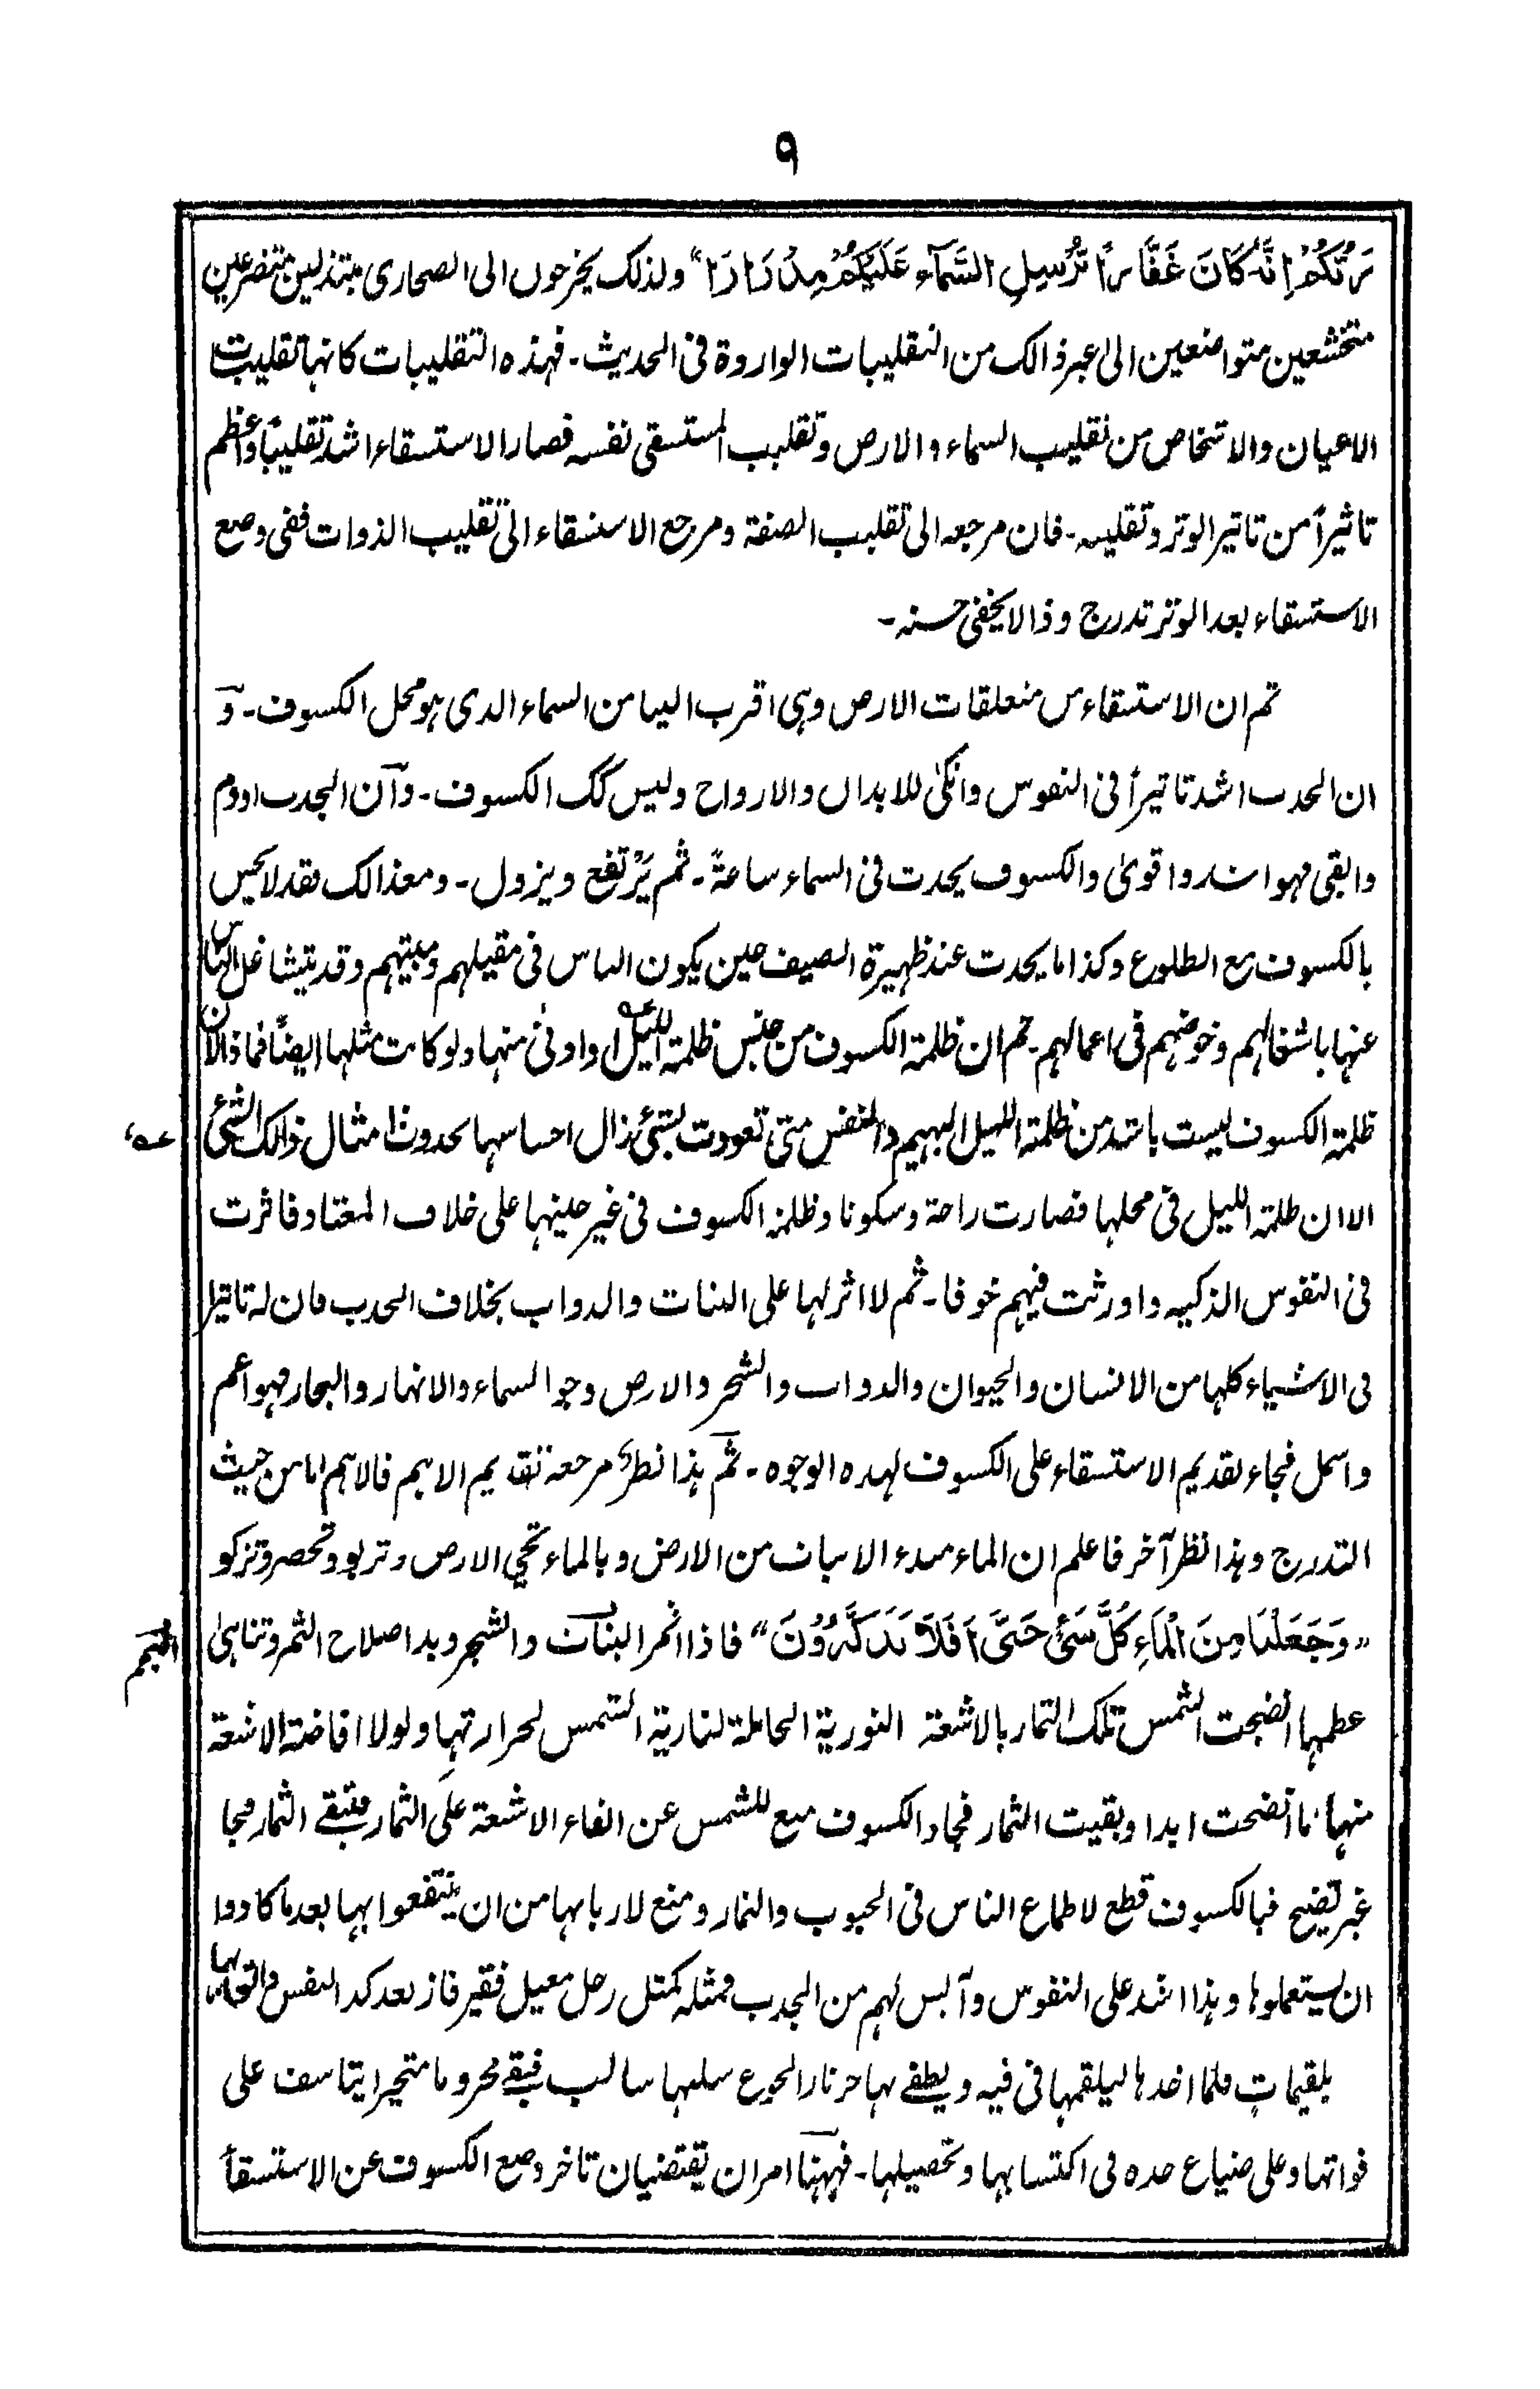 ٩
رَبَّكُمْ اِنَّهٗ كَانَ غَفَّارًا يُرْسِلِ السَّمَآءَ عَلَيْكُمْ مِدْرَارًا" ولذلک یخرجون الی الصحاری مبتذلین متضرعین
متخشعین متواضعین الیٰ غیر ذالک من التقلیبات الواردة فی الحدیث۔ فہذہ التقلیبات کانہا تقلیبات
الاعیان والاشخاص من تقلیب السماء والارض وتقلیب المستسقی نفسہ فصار الاستسقاء اشد تقلیبًا واعظم
تاثیراً من تاثیر الوتر وتقلیبہ۔ فان مرجعہ الی تقلیب الصفة ومرجع الاستسقاء الی تقلیب الذوات ففی وضع
الاستسقاء بعد الوتر تدرج وذا لا یخفیٰ حسنہ۔
ثم ان الاستسقاء من متعلقات الارض وہی اقرب الینا من السماء الذی ہو محل الکسوف۔ وَ
ان الجدب اشد تاثیراً فی النفوس وانکیٰ للابدان والارواح ولیس کک الکسوف۔ وآن الجدب ادوم
وابقی فہو اشد واقویٰ والکسوف یحدث فی السماء ساعةً۔ ثم یَرْتفع ویزول۔ ومعذالک فقد لا یحس
بالکسوف مع الطلوع وکذا ما یحدث عند ظہیرة الصیف حین یکون الناس فی مقیلہم ومبیتہم وقد یتشاغل الناس
عنہا باشغالہم وخوضہم فی اعمالہم۔ ثم ان ظلمة الکسوف من جنس ظلمة اللیل او ادنیٰ منہا ولو کانت مثلہا ایضًا فماذا لان
ظلمة الکسوف لیست باشد من ظلمة اللیل البہیم والنفس متی تعودت بشئ زال احساسہا بحدوث امثال ذالک الشئ
عہ
الا ان ظلمة اللیل فی محلہا فصارت راحة وسکونا وظلمة الکسوف فی غیر حینہا علی خلاف المعتاد فاثرت
فی النفوس الذکیہ واورثت فیہم خوفا۔ ثم لا اثر لہا علی النبات والدواب بخلاف الجدب فان لہ تاثیرا
فی الاشیاء کلہا من الانسان والحیوان والدواب والشجر والارض وجو السماء والانہار والبحار فہو اعم
واشمل فجاء تقدیم الاستسقاء علی الکسوف لہذہ الوجوہ۔ ثم ہذا نظر مرجعہ تقدیم الاہم فالاہم اما من حیث
التدرج وہذا نظر آخر فاعلم ان الماء مبدء الانبات من الارض وبالماء تحیی الارض وتربو وتخضر وتزکو
"وَجَعَلْنَا مِنَ الْمَاءِ كُلَّ شَئٍ حَيٍّ اَفَلَا تَذَكَّرُوْنَ" فاذا اثمر النبات والشجر وبدا صلاح الثمر وتناہیٰ
النجم
عظمہا انضجت الشمس تلک الثمار بالاشعة النوریة الحاملة لناریة الشمس لحرارتہا ولولا افاضة الاشعة
منہا ما انضجت ابدا وبقیت الثمار فجاء الکسوف منع للشمس عن القاء الاشعة علی الثمار فتبقے الثمار فجا
غیر نضیج فبالکسوف قطع لاطماع الناس فی الحبوب والثمار ومنع لاربابہا من ان ینتفعوا بہا بعدما کادوا
ان یستعملوہا وہذا اشد علی النفوس وآلبس لہم من الجدب فمثلہ کمثل رجل معیل فقیر فاز بعد کد النفس واتعابہا
بلقیمات فلما اخذہا لیلقمہا فی فیہ ویطفے بہا حر نار الجوع سلبہا سالب فبقے محروما متحیرا یتاسف علی
فواتہا وعلی ضیاع جدہ فی اکتسابہا وتحصیلہا۔ فہہنا امران یقتضیان تاخر وضع الکسوف عن الاستسقاء